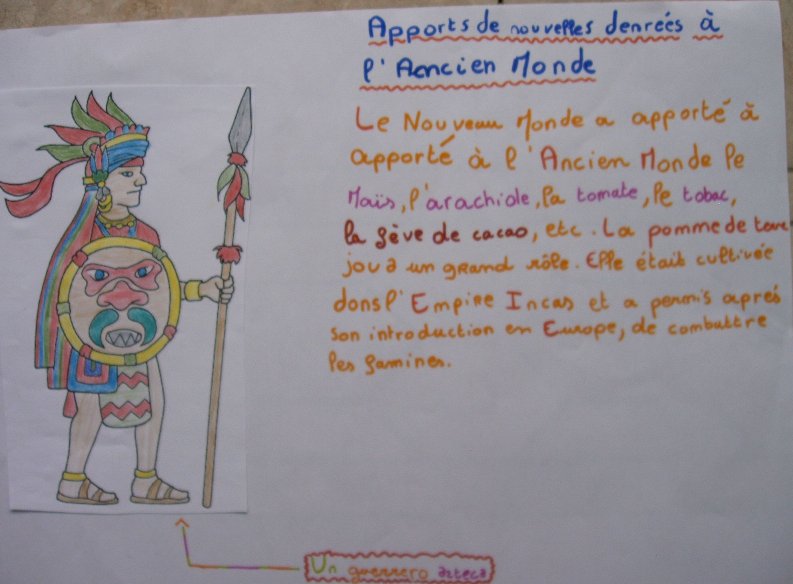 Apports de nouvelles denrées à
l'Ancien Monde
Le Nouveau Monde a apporté à
apporté à l'Ancien Monde le
Maïs, l'arachiole, la tomate, le tobac,
la fève de cacao, etc. La pomme de terre
joua un grand rôle. Elle était cultivée
dans l'Empire Incas et a permis aprés
son introduction en Europe, de combattre
les famines.
Un guerrero azteca